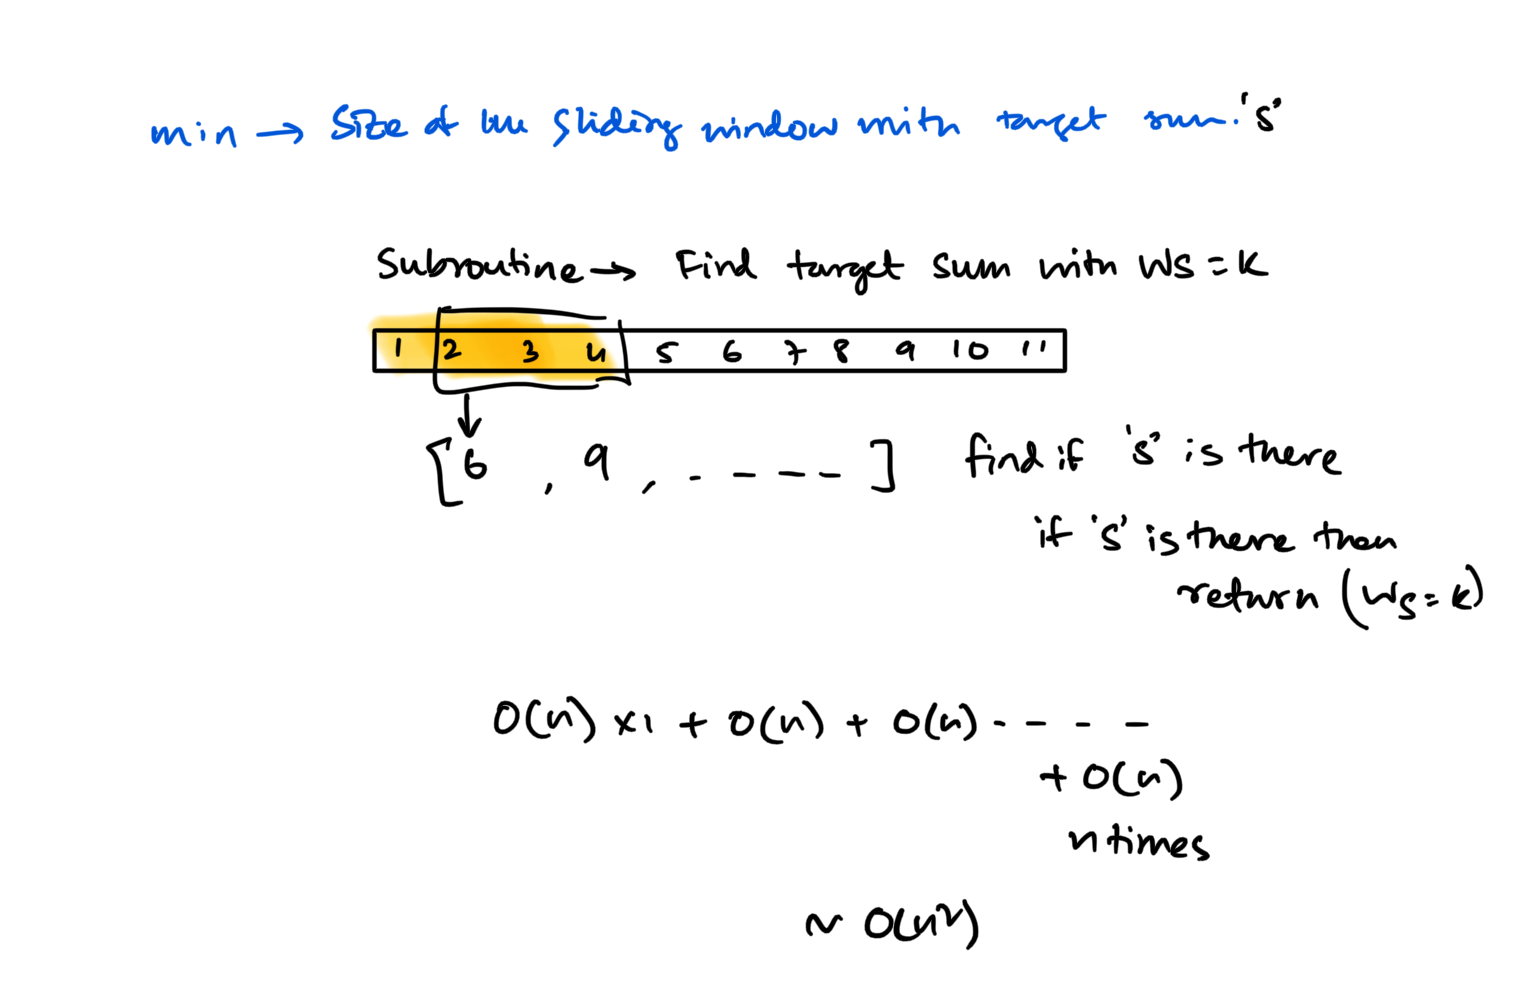 min → Size of the sliding window with target sum. 's'
Subroutine → Find target sum with WS = K
1 2 3 4 5 6 7 8 9 10 11
[6 , 9 , . - - - - ] find if 's' is there
if 's' is there then
return (WS = K)
O(n) x1 + O(n) + O(n) - - - -
+ O(n)
n times
~ O(n²)